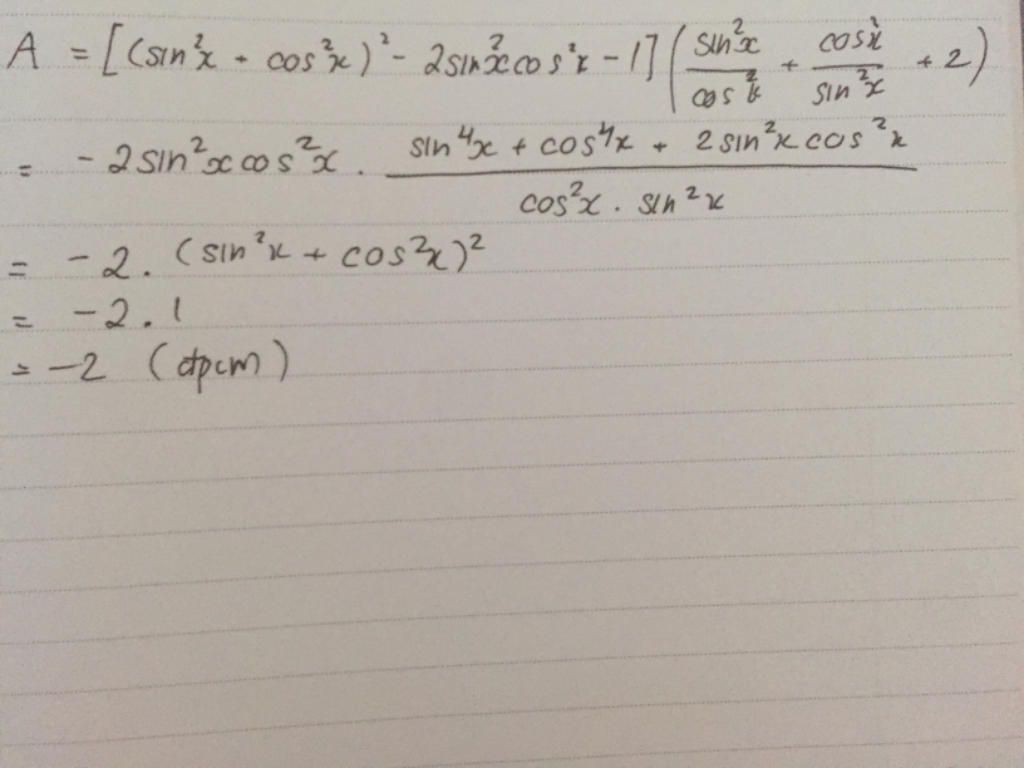 A = [(sin²x + cos²x)² - 2sin²xcos²x - 1] (sin²x/cos²x + cos²x/sin²x + 2)
= -2sin²xcos²x . (sin⁴x + cos⁴x + 2sin²xcos²x)/(cos²x . sin²x)
= -2. (sin²x + cos²x)²
= -2.1
= -2 (đpcm)